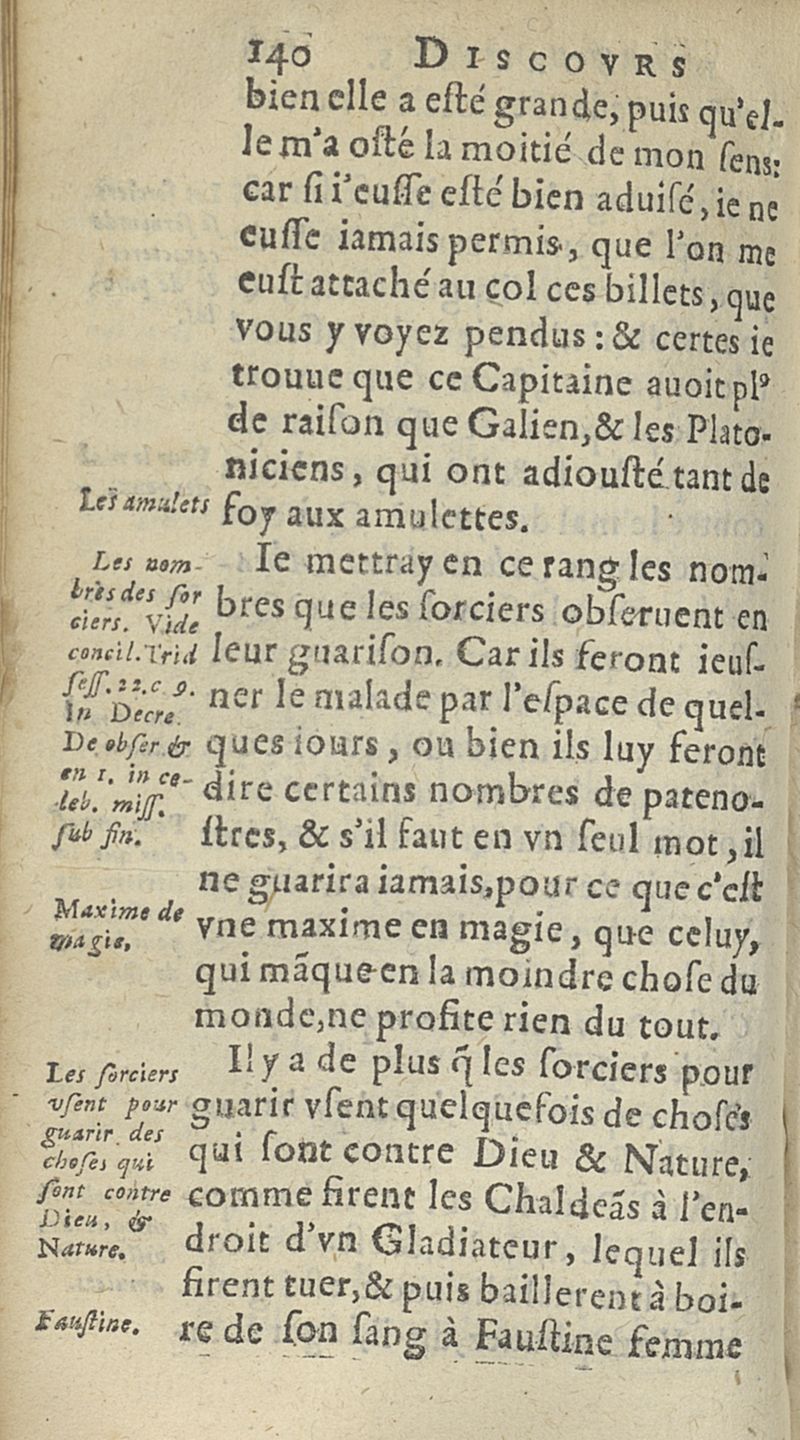 140 DISCOVRS
bien elle a eſté grande, puis qu'el-
le m'a oſté la moitié de mon ſens:
car ſi i'euſſe eſté bien aduiſé, ie ne
euſſe iamais permis, que l'on me
euſt attaché au col ces billets, que
vous y voyez pendus : & certes ie
trouue que ce Capitaine auoit plꝰ
de raiſon que Galien, & les Plato-
niciens, qui ont adiouſté tant de
foy aux amulettes.
Les amulets
Ie mettray en ce rang les nom-
bres que les ſorciers obſeruent en
leur guariſon. Car ils feront ieuſ-
ner le malade par l'eſpace de quel-
ques iours, ou bien ils luy feront
dire certains nombres de pateno-
ſtres, & s'il faut en vn ſeul mot, il
ne guarira iamais, pour ce que c'eſt
vne maxime en magie, que celuy,
qui mãque en la moindre choſe du
monde, ne profite rien du tout.
Les nom-
bres des ſor
ciers. Vide
concil. Trid
ſeſſ. 22. c 9.
In Decre.
De obſer. &
en 1. in ce-
leb. miſſ.
ſub fin.
Maxime de
magie.
Il y a de plus q̃ les ſorciers pour
guarir vſent quelquefois de choſes
qui ſont contre Dieu & Nature,
comme firent les Chaldeãs à l'en-
droit d'vn Gladiateur, lequel ils
firent tuer, & puis baillerent à boi-
re de ſon ſang à Fauſtine femme
Les ſorciers
vſent pour
guarir des
choſes qui
ſont contre
Dieu, &
Nature.
Fauſtine.